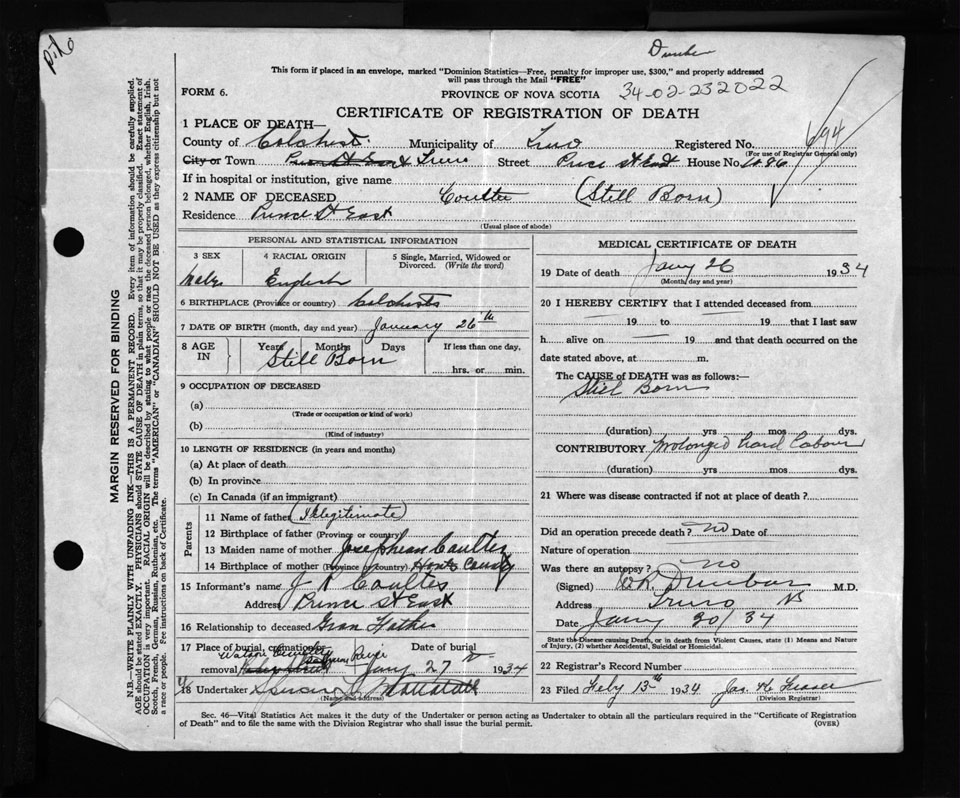 Dunbar
This form if placed in an envelope, marked "Dominion Statistics—Free, penalty for improper use, $300," and properly addressed
will pass through the Mail "FREE"
FORM 6.
PROVINCE OF NOVA SCOTIA 34-02-232022
CERTIFICATE OF REGISTRATION OF DEATH
1 PLACE OF DEATH— 694
County of Colchest. Municipality of Truro Registered No.
(For use of Registrar General only)
City or Town Truro Street Prince St East House No.
If in hospital or institution, give name
2 NAME OF DECEASED Coulter (Still Born)
Residence Prince St East
(Usual place of abode)
PERSONAL AND STATISTICAL INFORMATION
3 SEX 4 RACIAL ORIGIN 5 Single, Married, Widowed or
Divorced. (Write the word)
Male English
6 BIRTHPLACE (Province or country) Colchester
7 DATE OF BIRTH (month, day and year) January 26th
8 AGE IN Years Months Days If less than one day,
Still Born hrs. or min.
9 OCCUPATION OF DECEASED
(a)
(Trade or occupation or kind of work)
(b)
(Kind of industry)
10 LENGTH OF RESIDENCE (in years and months)
(a) At place of death
(b) In province
(c) In Canada (if an immigrant)
Parents
11 Name of father (Illegitimate)
12 Birthplace of father (Province or country)
13 Maiden name of mother Josephean Coulter
14 Birthplace of mother (Province or country) Hants County
15 Informant's name J R Coulter
Address Prince St East
16 Relationship to deceased Gran Father
17 Place of burial, cremation or Date of burial
Cemetery Salmon River
removal Jany 27 1934
18 Undertaker
(Name and address)
MEDICAL CERTIFICATE OF DEATH
19 Date of death Jany 26 1934
(Month, day and year)
20 I HEREBY CERTIFY that I attended deceased from
19 to 19 that I last saw
h alive on 19 and that death occurred on the
date stated above, at m.
The CAUSE of DEATH was as follows:—
Still Born
(duration) yrs mos dys.
CONTRIBUTORY Prolonged hard Labour
(duration) yrs mos dys.
21 Where was disease contracted if not at place of death?
Did an operation precede death? no Date of
Nature of operation
Was there an autopsy? no
(Signed) Dunbar M.D.
Address Truro NS
Date Jany 30/34
State the Disease causing Death, or in death from Violent Causes, state (1) Means and Nature
of Injury, (2) whether Accidental, Suicidal or Homicidal.
22 Registrar's Record Number
23 Filed Feby 13th 1934 Jas. H. Fraser
(Division Registrar)
Sec. 46—Vital Statistics Act makes it the duty of the Undertaker or person acting as Undertaker to obtain all the particulars required in the "Certificate of Registration
of Death" and to file the same with the Division Registrar who shall issue the burial permit. (OVER)
MARGIN RESERVED FOR BINDING
N.B.—WRITE PLAINLY WITH UNFADING INK—THIS IS A PERMANENT RECORD. Every item of information should be carefully supplied.
AGE should be stated EXACTLY. PHYSICIANS should STATE CAUSE OF DEATH in plain terms, so that it may be properly classified. Exact statement of
OCCUPATION is very important. RACIAL ORIGIN will be described by stating to what people or race the deceased person belonged, whether English, Irish,
Scotch, French, German, Russian, Ruthenian, etc. The terms "AMERICAN" or "CANADIAN" SHOULD NOT BE USED as they express citizenship but not
a race or people. See instructions on back of Certificate.